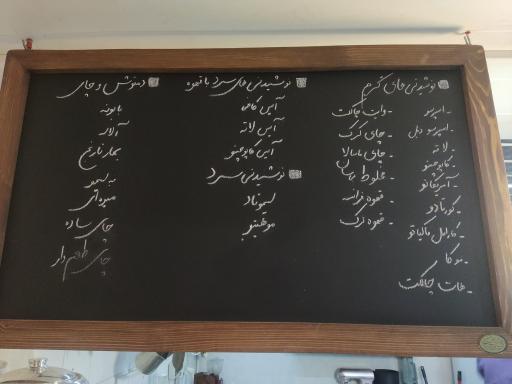 نوشیدنی های گرم
- اسپرسو
- اسپرسو دبل
- لاته
- کاپوچینو
- آمریکانو
- کورتادو
- کارامل ماکیاتو
- موکا
- هات چاکلت
- وایت چاکلت
- چای کرک
- چای ماسالا
- مخلوط
- قهوه فرانسه
- قهوه ترک
نوشیدنی های سرد با قهوه
آیس کافی
آیس لاته
آیس کاپوچینو
نوشیدنی سرد
لیموناد
موهیتو
دمنوش و چای
بابونه
آلار
بهار نارنج
به لیمو
میوه ای
چای ساده
چای طعم دار